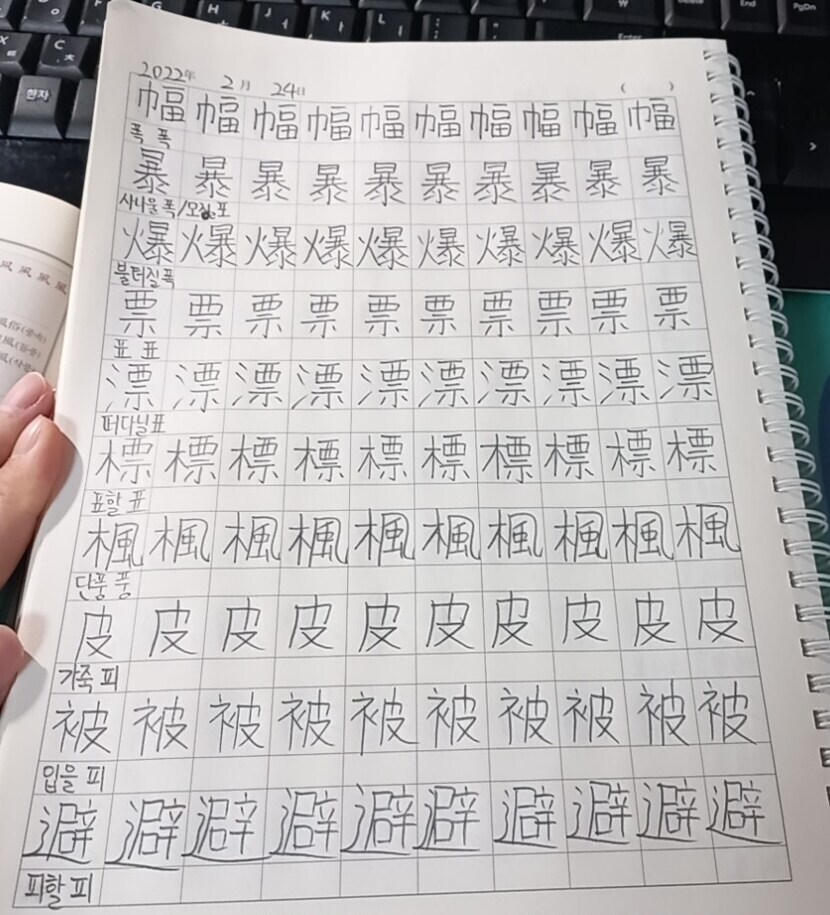 2022年 2月 24日 ( )
幅 幅 幅 幅 幅 幅 幅 幅 幅 幅
폭 폭
暴 暴 暴 暴 暴 暴 暴 暴 暴 暴
사나울 폭/모질 포
爆 爆 爆 爆 爆 爆 爆 爆 爆 爆
불터질 폭
票 票 票 票 票 票 票 票 票 票
표 표
漂 漂 漂 漂 漂 漂 漂 漂 漂 漂
떠다닐 표
標 標 標 標 標 標 標 標 標 標
표할 표
楓 楓 楓 楓 楓 楓 楓 楓 楓 楓
단풍 풍
皮 皮 皮 皮 皮 皮 皮 皮 皮 皮
가죽 피
被 被 被 被 被 被 被 被 被 被
입을 피
避 避 避 避 避 避 避 避 避 避
피할 피
風 風 風 風
한자
H
J
K
L
C
End
PgDn
Enter